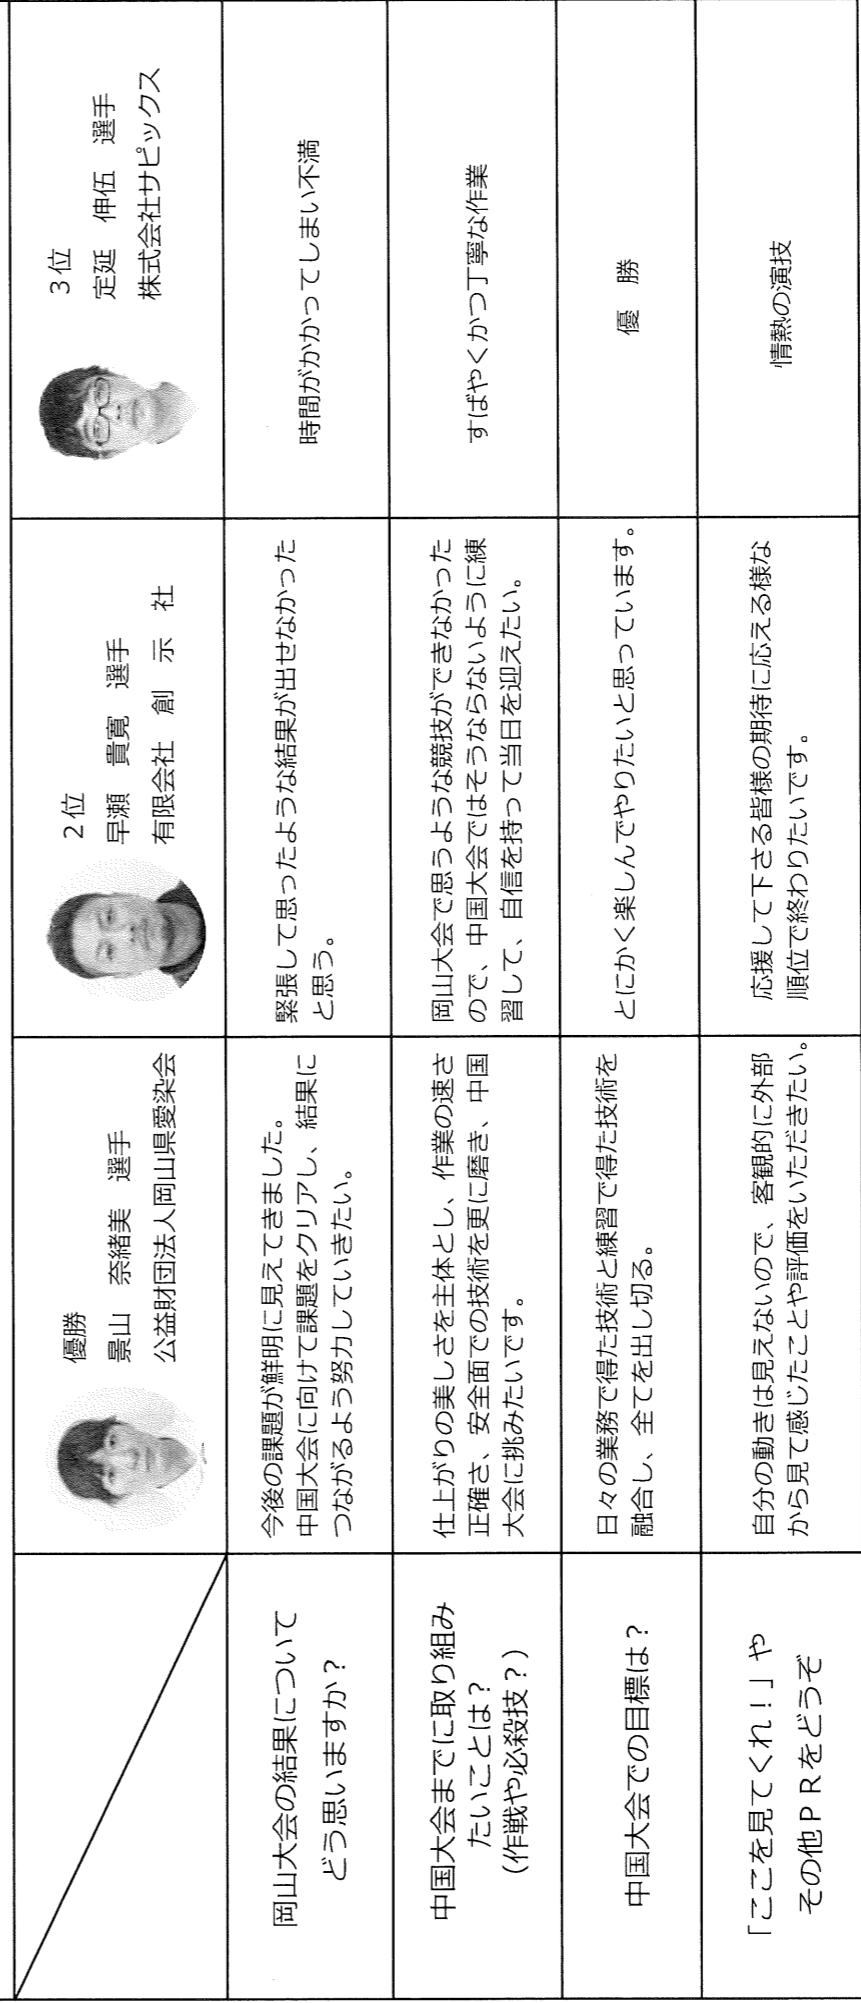 優勝
景山　奈緒美　選手
公益財団法人岡山県愛染会
２位
早瀬　貴寛　選手
有限会社　創　示　社
３位
定延　伸伍　選手
株式会社サピックス
岡山大会の結果について
どう思いますか？
今後の課題が鮮明に見えてきました。
中国大会に向けて課題をクリアし、結果に
つながるよう努力していきたい。
緊張して思ったような結果が出せなかった
と思う。
時間がかかってしまい不満
中国大会までに取り組み
たいことは？
（作戦や必殺技？）
仕上がりの美しさを主体とし、作業の速さ
正確さ、安全面での技術を更に磨き、中国
大会に挑みたいです。
岡山大会で思うような競技ができなかった
ので、中国大会ではそうならないように練
習して、自信を持って当日を迎えたい。
すばやくかつ丁寧な作業
中国大会での目標は？
日々の業務で得た技術と練習で得た技術を
融合し、全てを出し切る。
とにかく楽しんでやりたいと思っています。
優　勝
「ここを見てくれ！」や
その他ＰＲをどうぞ
自分の動きは見えないので、客観的に外部
から見て感じたことや評価をいただきたい。
応援して下さる皆様の期待に応える様な
順位で終わりたいです。
情熱の演技